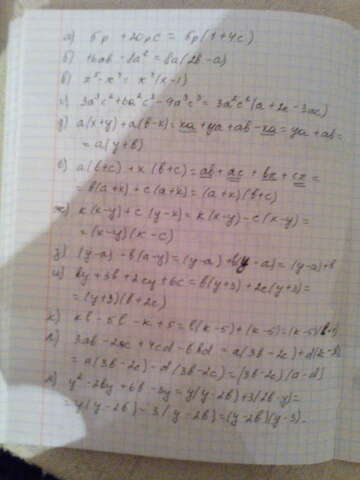 а) 5p + 20pc = 5p(1+4c)
б) 16ab - 8a² = 8a(2b-a)
в) x⁵ - x⁴ = x⁴(x-1)
г) 3a³c² + 6a²c³ - 9a³c³ = 3a²c²(a+2c-3ac)
д) a(x+y)+a(b-x) = xa+ya+ab-xa = ya+ab=
= a(y+b)
е) a(b+c) + x(b+c) = ab + ac + bx + cx =
= b(a+x) + c(a+x) = (a+x)(b+c)
ж) k(x-y)+c(y-x) = k(x-y)-c(x-y)=
= (x-y)(k-c)
з) (y-a)-b(a-y) = (y-a)+b(y-a) = (y-a)+b
и) by + 3b + 2cy + 6c = b(y+3)+2c(y+3)=
= (y+3)(b+2c)
к) kb - 5b - k + 5 = b(k-5)+(k-5)=(k-5)(b-1)
л) 3ab - 2ac + 4cd - 6bd = a(3b-2c)+d(
= a(3b-2c)-d(3b-2c)=(3b-2c)(a-d)
м) y² - 2by + 6b - 3y = y(y-2b)+3(2b-y)=
= y(y-2b)-3(y-2b)=(y-2b)(y-3).